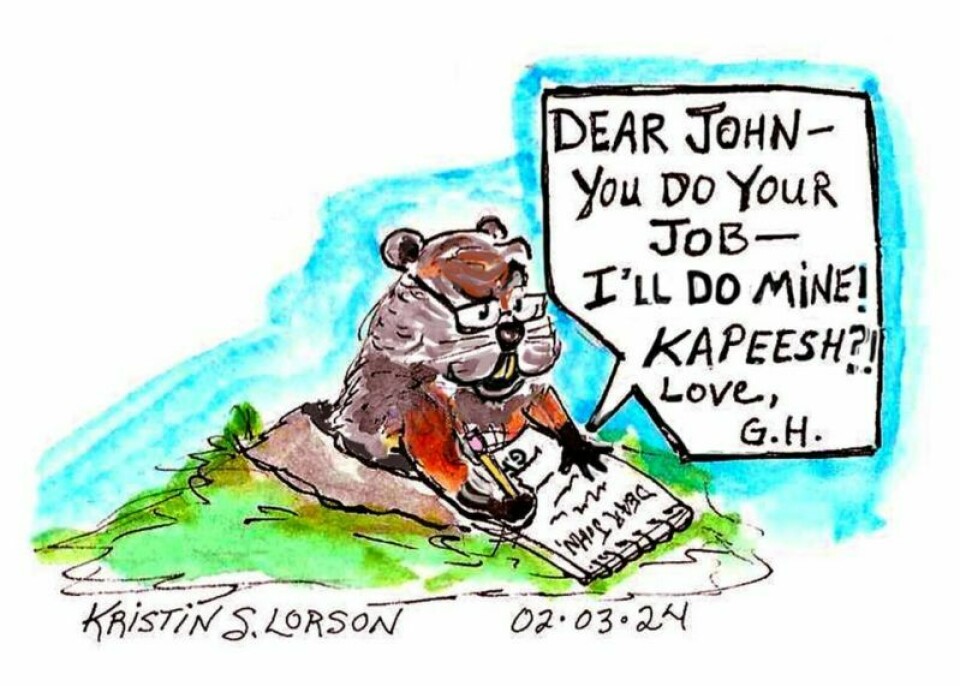 DEAR JOHN—
YOU DO YOUR
JOB—
I'LL DO MINE!
KAPEESH?!
LOVE,
G.H.
DEAR JOHN,
G.
KRISTIN S. LORSON
02.03.24